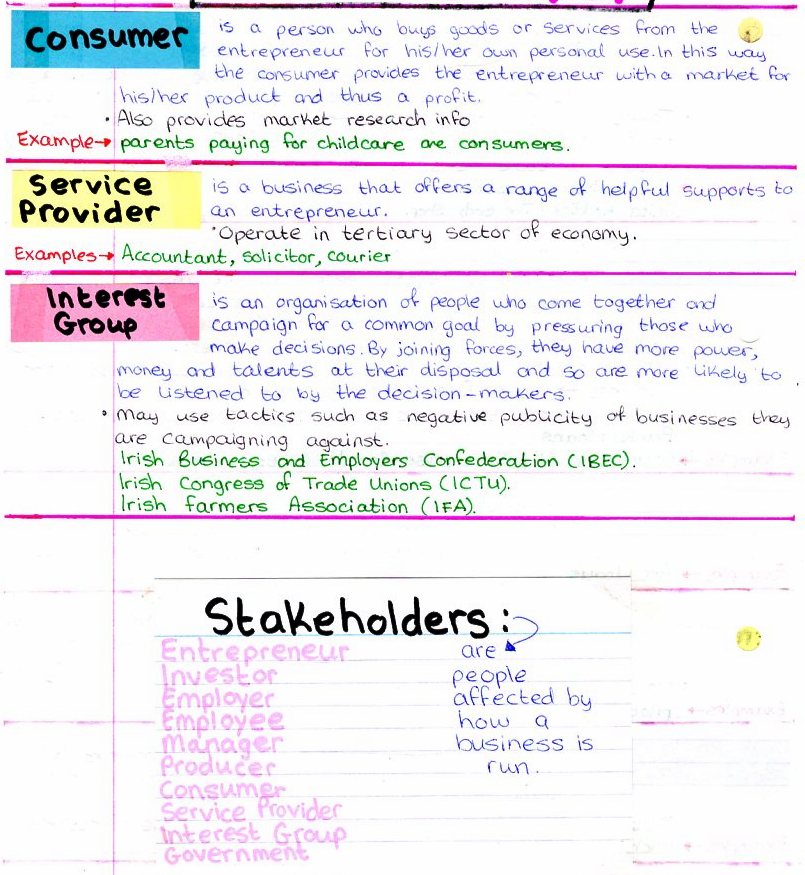 Consumer is a person who buys goods or services from the
entrepreneur for his/her own personal use. In this way
the consumer provides the entrepreneur with a market for
his/her product and thus a profit.
• Also provides market research info
Example→ parents paying for childcare are consumers.
Service Provider is a business that offers a range of helpful supports to
an entrepreneur.
• Operate in tertiary sector of economy.
Examples→ Accountant, solicitor, courier
Interest Group is an organisation of people who come together and
campaign for a common goal by pressuring those who
make decisions. By joining forces, they have more power,
money and talents at their disposal and so are more likely to
be listened to by the decision-makers.
• May use tactics such as negative publicity of businesses they
are campaigning against.
Irish Business and Employers Confederation (IBEC).
Irish Congress of Trade Unions (ICTU).
Irish Farmers Association (IFA).
Stakeholders:
are
people
affected by
how a
business is
run.
Entrepreneur
Investor
Employer
Employee
Manager
Producer
Consumer
Service Provider
Interest Group
Government